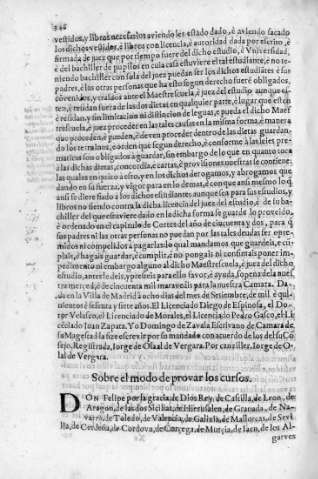 346
vestidos, y libros necessarios aviendo les estado dado, ò aviendo sacado
los dichos vestidos, è libros con licencia, è autoridad dada por escrito, è
firmada de juez que por tiempo fuere del dicho estudio, è Vniversidad,
è del bachiller de pupilos en cuia casa estuviere el tal estudiante, è no te-
niendo bachiller con sala del juez puedan ser los dichos estudiantes è sus
padres, è las otras personas que ha esto segun derecho fuere obligados,
convenidos, y traidos ante el Maestrescuela, è juez del estudio aunque esten,
è residan fuera de las dos dietas en qualquier parte, è lugar que esten
è residan, y sin limitacion ni distincion de leguas, è pueda el dicho Maes
trescuela, è juez proceder en las tales causas en la misma forma, è manera
que pode den, è pueden, è deven proceder dentro de las dietas guardan-
do los terminos, è orden que segun derecho, è conforme à las leyes pre-
maticas sois obligados à guardar, sin embargo de lo que en quanto toca
à las dichas dietas, concordia, è cartas, è provisiones nuestras se contiene
las quales en quito à esto, y en los dichos derogamos, y abrogamos que
dando en su fuerza, y vigor para en lo demas, è con que ansi mesmo lo q
ansi se diere fiado à los dichos estudiantes aunque sea para sus estudios, y
libros no siendo contra la dicha licencia del juez del estudio, è de su ba-
chiller del que estuviere dado en la dicha forma se guarde lo proveido,
è ordenado en el capitulo de Cortes del año de cincuenta y dos, para q
sus padres ni las otras personas no puedan por las tales deudas ser apre-
miados ni compelidos à pagarlas lo qual mandamos que guardeis, è cun-
plais, è hagais guardar, è cumplir, è no pongais ni consintais poner im-
pedimento ni embargo alguno al dicho Maestrescuela, è juez del dicho
estudio, antes le deis, y presteis para ello favor, è ayuda, so pena de la nues
tra merced, è de cincuenta mil maravedis para la nuestra Camara. Da-
da en la Villa de Madrid à ocho dias del mes de Setiembre, de mil è qui-
nientos è sesenta y siete años. El Licenciado Diego de Espinosa, el Do-
tor Velasco, el Licenciado de Morales, el Licenciado Pedro Gasco, el Li-
cenciado Juan Zapata. Yo Domingo de Zavala Escrivano de Camara de
su Magestad la fize escrevir por su mandado con acuerdo de los del su Co-
sejo, Registrada, Jorge de Olaal de Vergara. Por canciller. Jorge de O-
lal de Vergara.
Sobre el modo de provar los cursos.
DON Felipe por la gracia de Dios Rey, de Castilla, de Leon, de
Aragon, de las dos Sicilias, de Hierusalen, de Granada, de Na-
varra, de Toledo, de Valencia, de Galicia, de Mallorcas, de Sevi
lla, de Cerdeña, de Cordova, de Corcega, de Murcia, de Jaen, de los Al-
garves